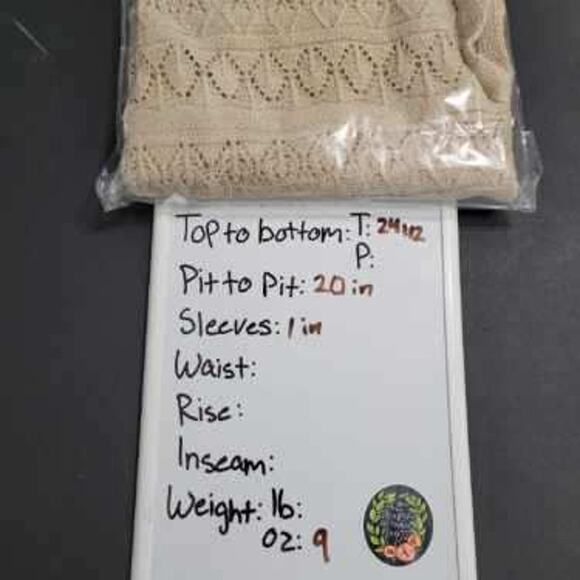 Top to bottom: T: 24 1/2
P:
Pit to Pit: 20 in
Sleeves: 1 in
Waist:
Rise:
Inseam:
Weight: lb:
oz: 9